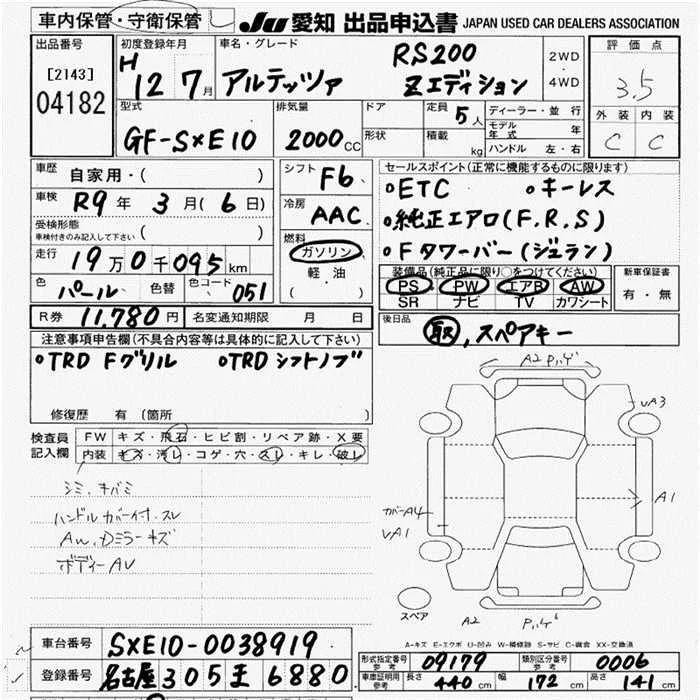 車内保管・守衛保管
JU 愛知 出品申込書 JAPAN USED CAR DEALERS ASSOCIATION
出品番号
[2143]
04182
初度登録年月
H 12 7月
車名・グレード
アルテッツァ RS200 Zエディション
2WD・4WD
評価点
3.5
外装 内装
C C
型式
GF-SXE10
排気量
2000CC
ドア
形状
定員 5人
積載 kg
ディーラー・並行
モデル年式 年
ハンドル 左・右
車歴 自家用・( )
車検 R9年 3月(6日)
受検形態
車検付きのみ記入して下さい ( )
走行 19万0千095km
色 パール 色替 色コード 051
R券 11,780円 名変通知期限 月 日
シフト F6
冷房 AAC
燃料
ガソリン
軽・油
( )
セールスポイント(正常に機能するものに限ります)
○ETC ○キーレス
○純正エアロ(F.R.S)
○Fタワーバー(ジュラン)
装備品(純正品に限り○をつけてください)
PS PW エアB AW
SR ナビ TV カワシート
新車保証書
有・無
後日品
取, スペアキー
注意事項申告欄(不具合内容等は具体的に記入して下さい)
○TRD Fグリル ○TRD シフトノブ
修復歴 有 (箇所
検査員記入欄
FW キズ・飛石・ヒビ割・リペア跡・X要
内装 キズ・汚レ・コゲ・穴・スレ・キレ・破レ
シミ、キバミ
ハンドルカバー付.スレ
AW、Dミラーキズ
ボディーAU
A2 Pハゲ
UA3
A1
カバーA4
UA1
スペア
A2 Pハゲ
A-キズ E-エクボ U-凹み W-補修跡 S-サビ C-腐食 XX-交換済
車台番号 SXE10-0038919
登録番号 名古屋 305 王 6880
形式指定番号 参考 09179 類別区分番号 参考 0006
車庫証明用 参考 長さ 440cm 幅 172cm 高さ 141cm